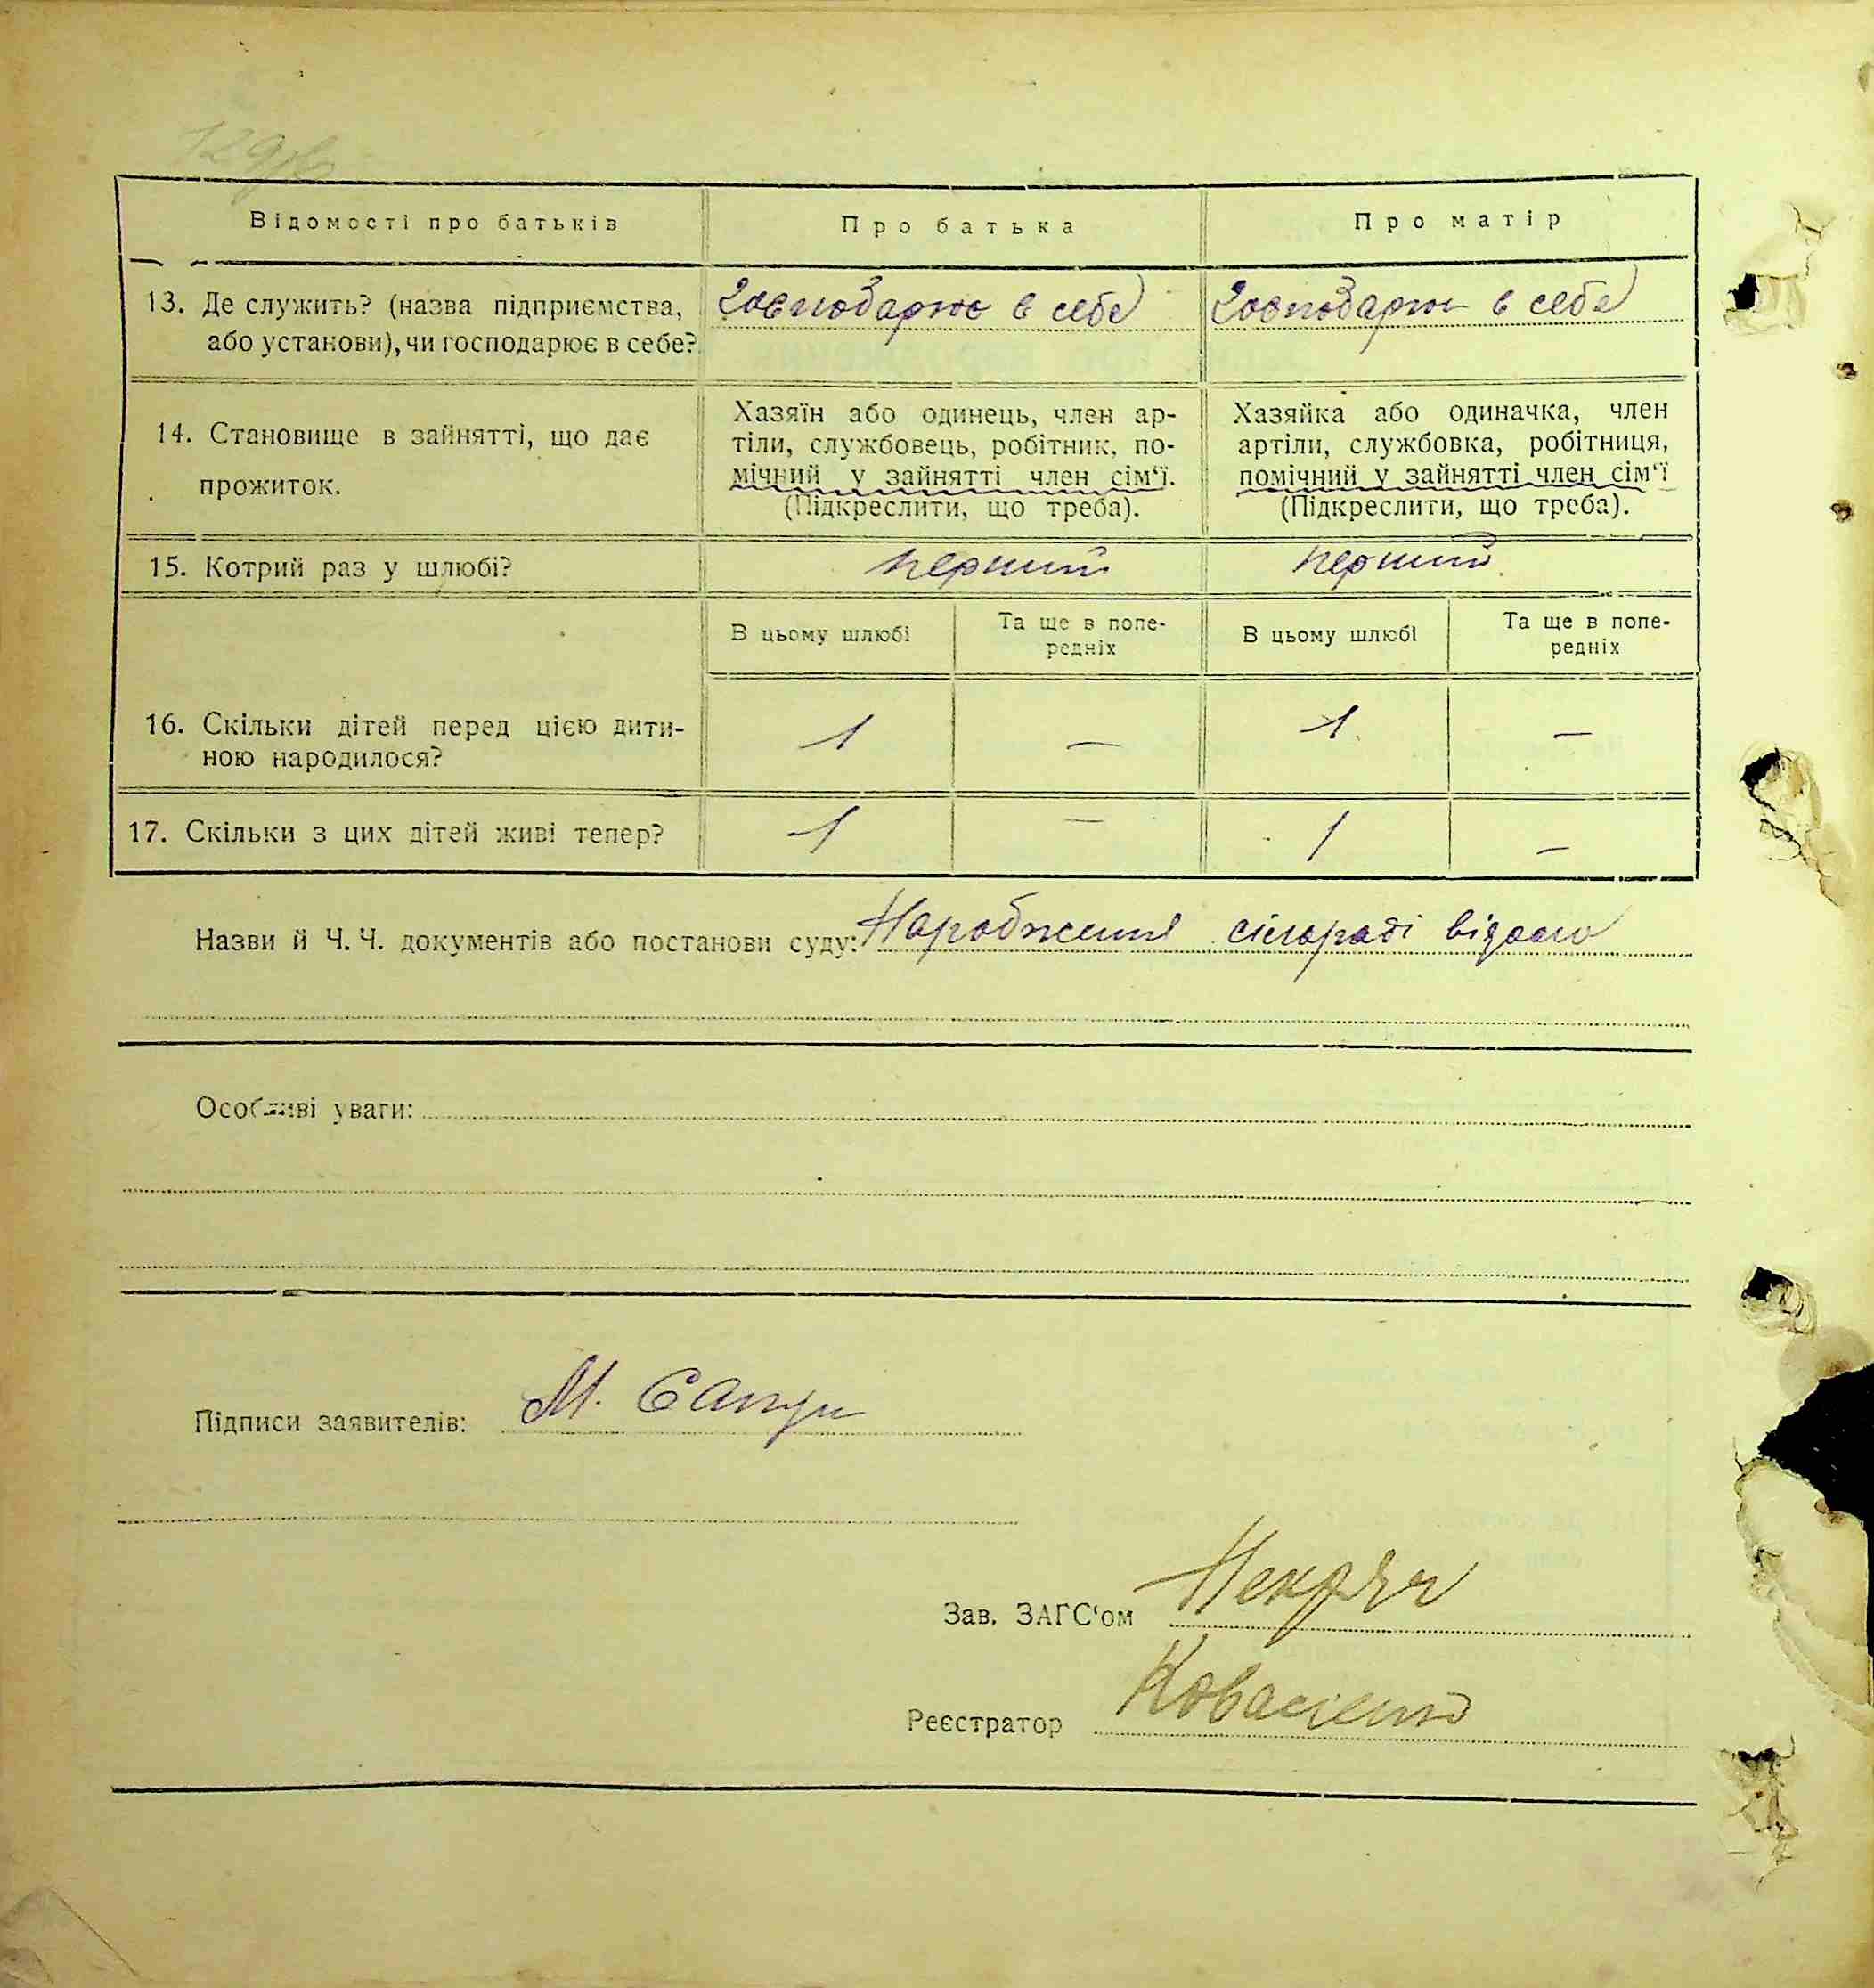 Відомості про батьків
Про батька
Про матір
13. Де служить? (назва підприємства, або установи), чи господарює в себе?
господарює в себе
господарює в себе
14. Становище в зайнятті, що дає прожиток.
Хазяїн або одинець, член ар-
тіли, службовець, робітник, по-
мічний у зайнятті член сім‘ї.
(Підкреслити, що треба).
Хазяйка або одиначка, член
артіли, службовка, робітниця,
помічний у зайнятті член сім‘ї
(Підкреслити, що треба).
15. Котрий раз у шлюбі?
перший
перший
В цьому шлюбі
Та ще в попе-
редніх
В цьому шлюбі
Та ще в попе-
редніх
16. Скільки дітей перед цією дити-
ною народилося?
1
—
1
—
17. Скільки з цих дітей живі тепер?
1
—
1
—
Назви й Ч. Ч. документів або постанови суду: Народження сільраді відомо
Особливі уваги:
Підписи заявителів: М.
Зав. ЗАГС‘ом
Реєстратор